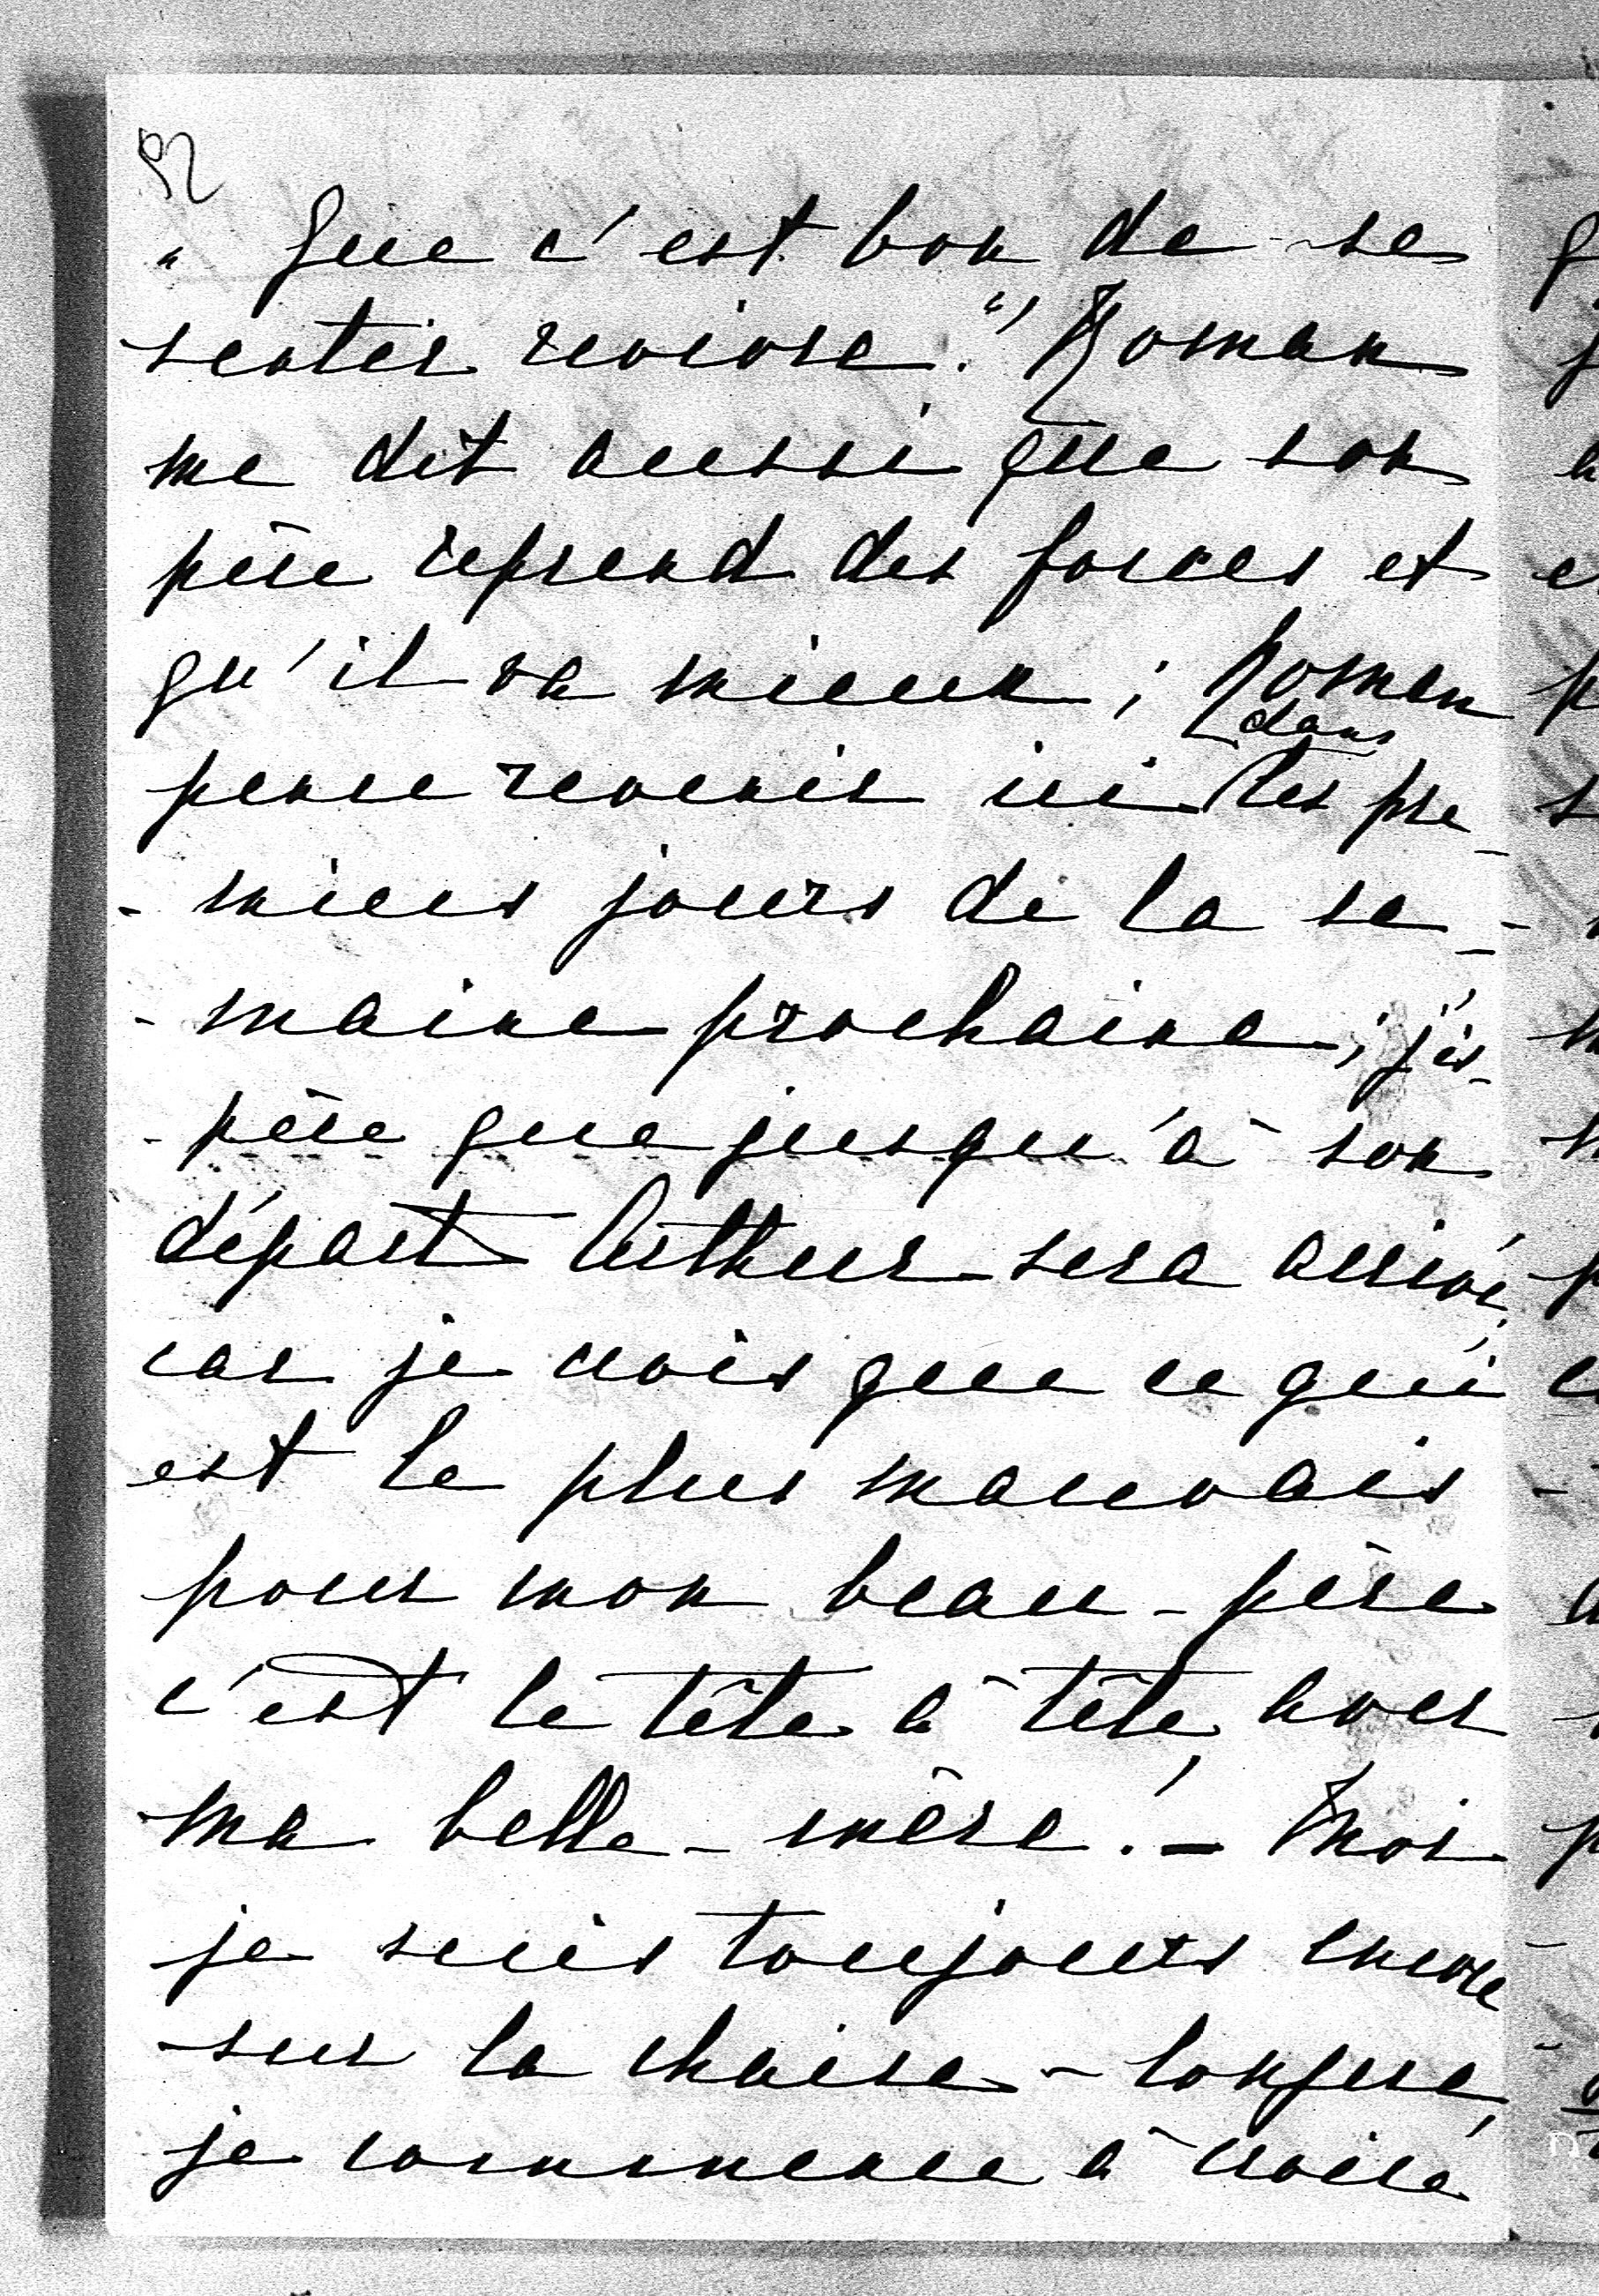 92
" Que c'est bon de se
sentir revivre." Roman
me dit aussi que son
père reprend des forces et
qu'il va mieux ; Roman
pense revenir ici dans les pre-
- miers jours de la se-
- maine prochaine ; j'es-
- père que jusqu'à son
départ Arthur sera arrivé,
car je crois que ce qui
est le plus mauvais
pour mon beau-père
c'est le tête à tête, avec
ma belle-mère ! - Moi
je suis toujours encore
sur la chaise-longue,
je commence à croire